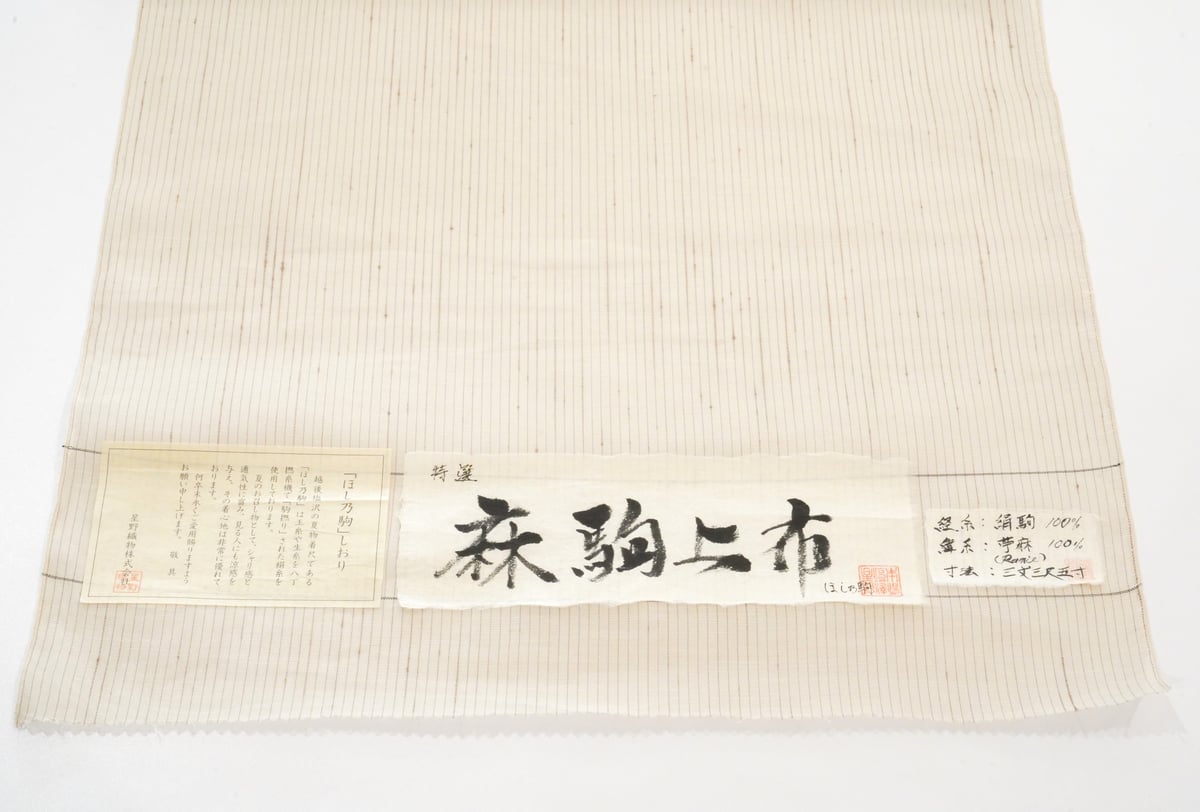 「ほし乃駒」しおり
越後塩沢の夏物着尺である
「ほし乃駒」は玉糸や生糸を八丁
撚糸機で「駒撚り」された絹糸を
使用しております。
夏のお召し物として、シャリ感と
通気性に富み、見る人にも涼感を
与え、その着心地は非常に優れて
おります。
何卒末永くご愛用賜りますよう
お願い申し上げます。
敬具
星野織物株式会社
特選
麻駒上布
ほし乃駒
経糸:絹駒 100%
緯糸:苧麻 100%
(Ramie)
寸法:三丈三尺五寸